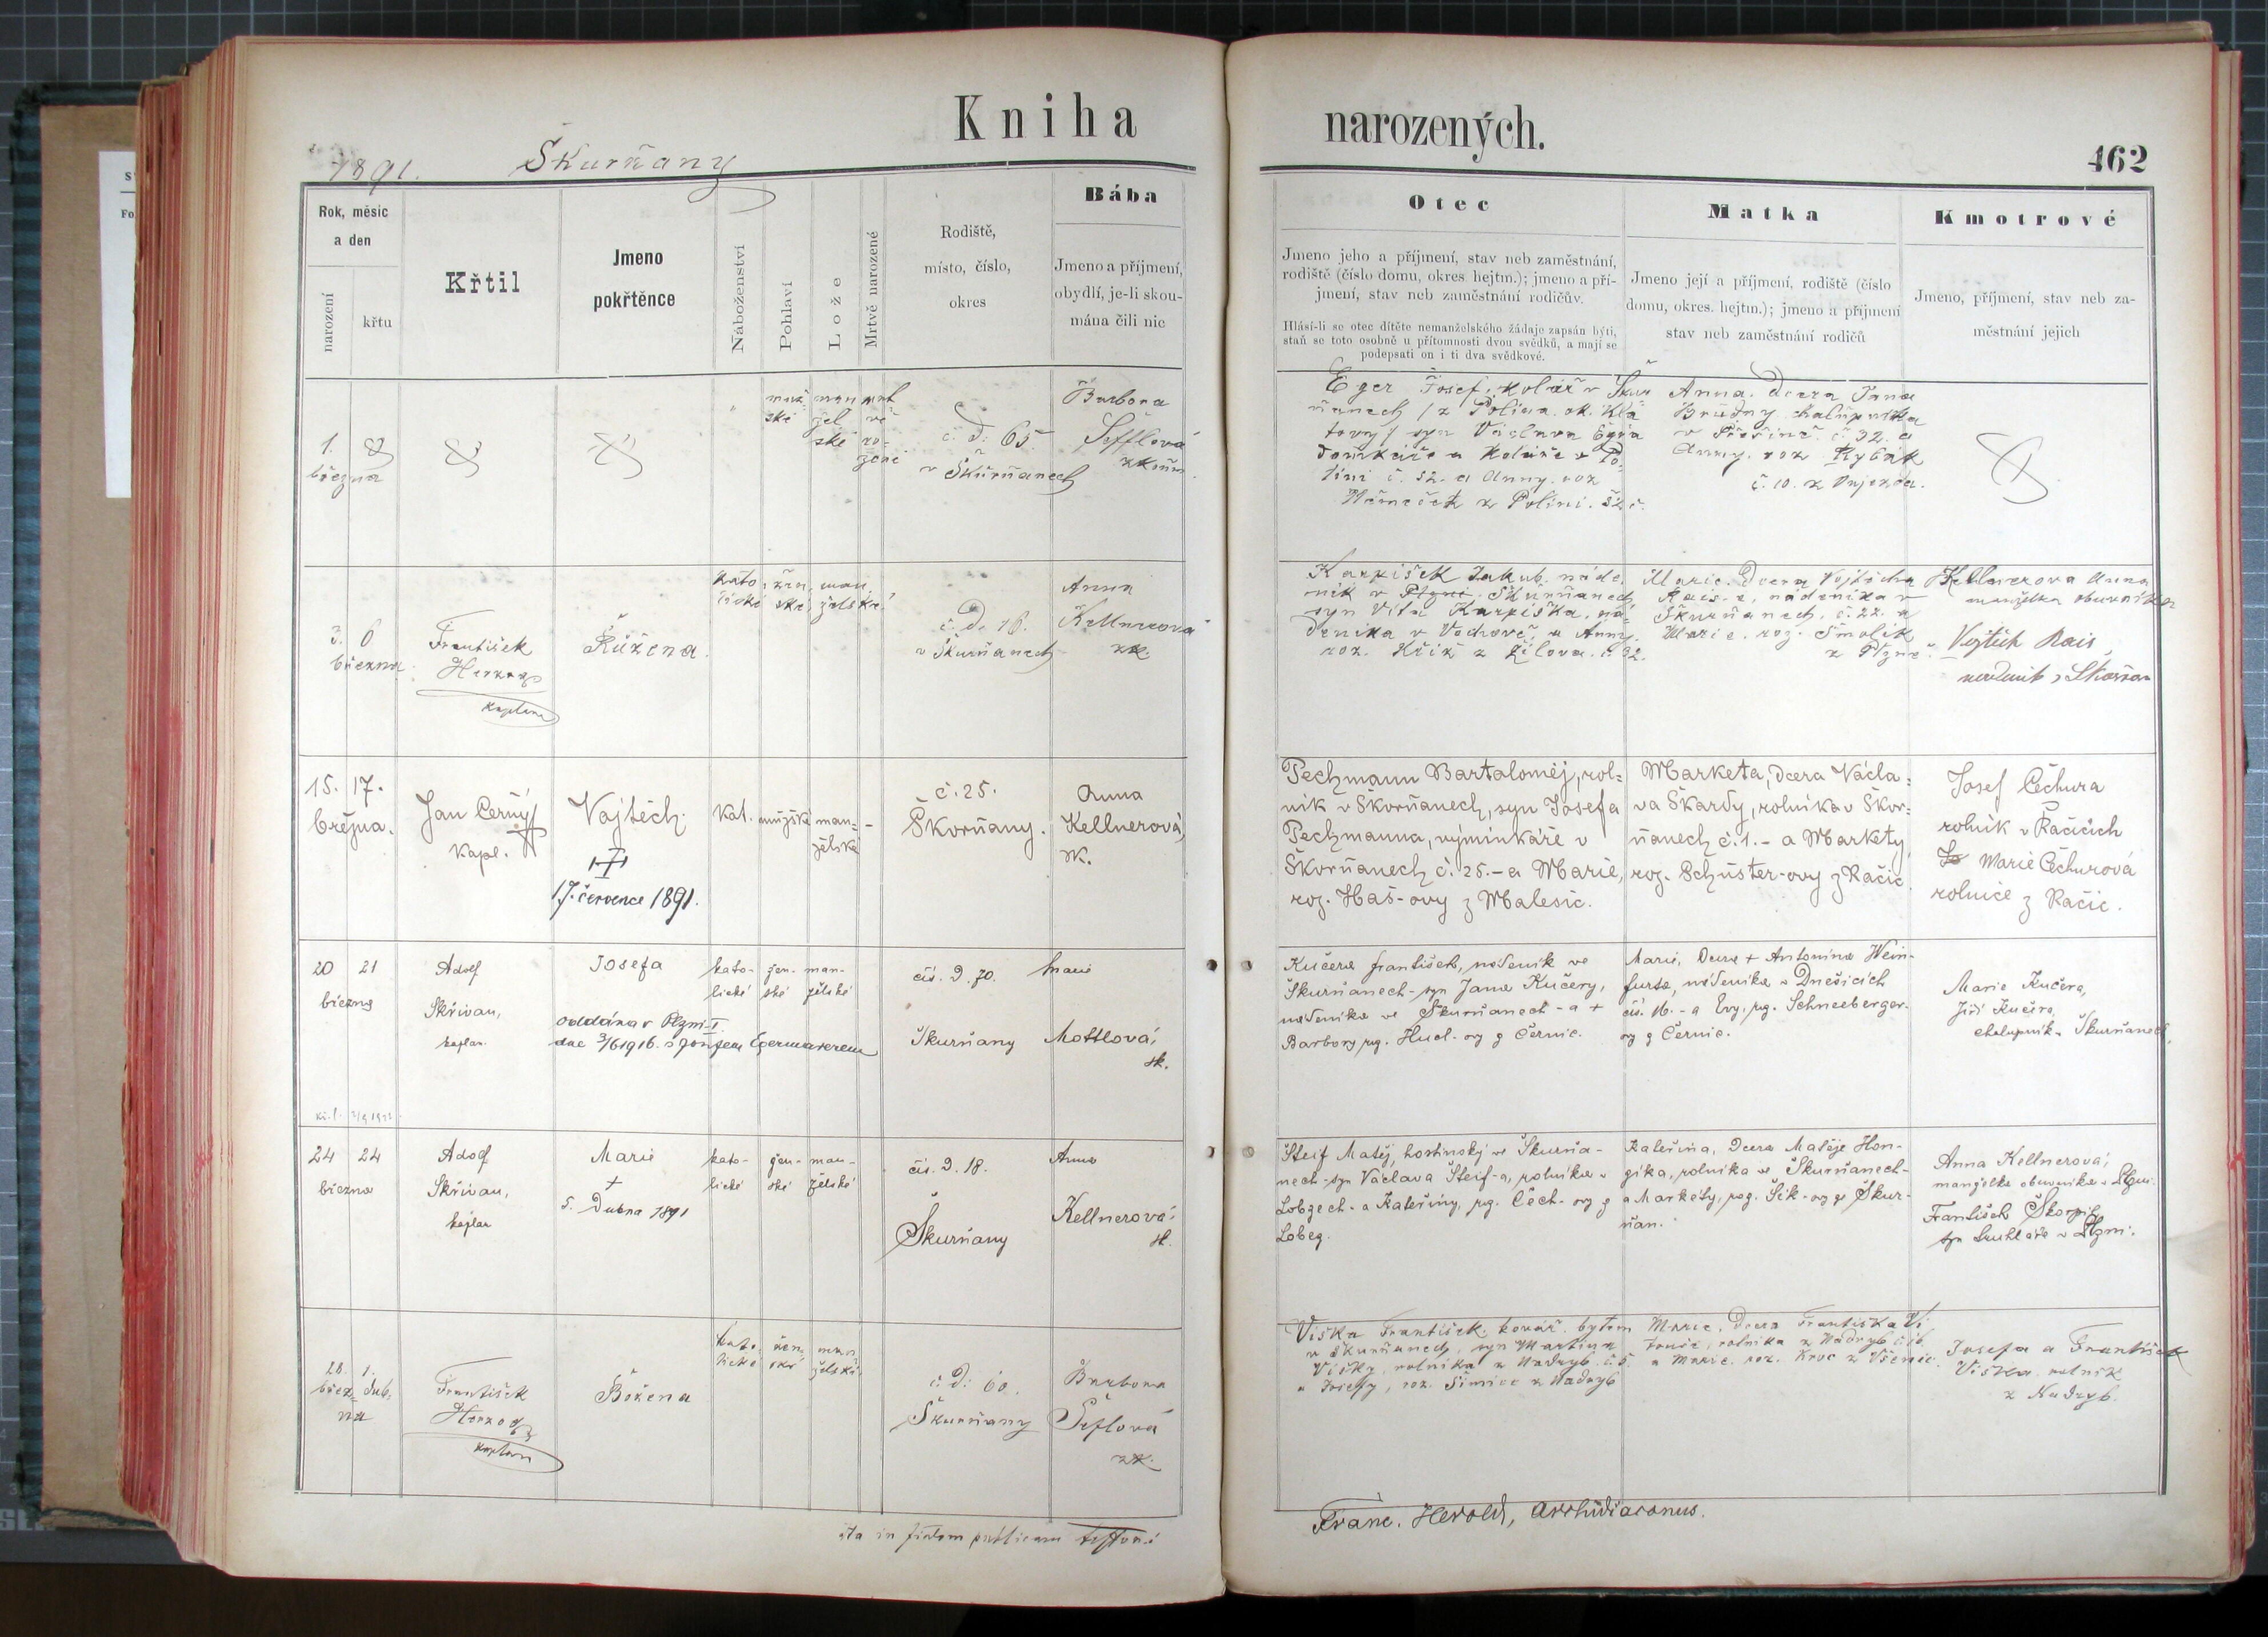 Kniha narozených.
1891. Škurňany
462
Rok, měsíc a den
narození
křtu
Křtil
Jmeno pokřtěnce
Náboženství
Pohlaví
Lože
Mrtvě narozené
Rodiště,
místo, číslo,
okres
Bába
Jmeno a příjmení,
obydlí, je-li skou-
mána čili nic
Otec
Jmeno jeho a příjmení, stav neb zaměstnání,
rodiště (číslo domu, okres. hejtm.); jmeno a pří-
jmení, stav neb zaměstnání rodičův.
Hlásí-li se otec dítěte nemanželského žádaje zapsán býti,
staň se toto osobně u přítomnosti dvou svědků, a mají se
podepsati on i ti dva svědkové.
Matka
Jmeno její a příjmení, rodiště (číslo
domu, okres. hejtm.); jmeno a příjmení
stav neb zaměstnání rodičů
Kmotrové
Jmeno, příjmení, stav neb za-
městnání jejich
1.
března
muž-
ské
man
žel
ské
mrt
vě
ro-
zené
č. d. 65
v Škurňanech
Barbora
Šifflová
zkouš.
Eger Josef, kolář v Škur
ňanech / z Polína ok. Kla
tovy / syn Václava Egra
domkáře a koláře v Po-
líni č. 52. a Anny. roz
Němeček z Políni. 52 č.
Anna. dcera Jana
chalupníka
č. 32. a
Anny. roz. Rybák
č. 10. z
3. 6.
března
František
Herzog
kaplan
Růžena.
kato-
lické
žen
ské
man
želské
č. d. 18.
v Škurňanech
Anna
Kellnerová
zk.
Karpíšek Jakub. náde-
ník v Škurňanech
syn Víta Karpíška. ná-
deníka v Vochově, a Anny.
roz. Kříž z Žilova. č 32.
Marie. dcera Vojtěcha
Rais-a, nádeníka v
Škurňanech. č. 22. a
Marie. roz. Smolík
z Plzně.
Kellnerova Anna
manželka obuvníka
Vojtěch Rais,
nádeník v Škorňan
15. 17.
března.
Jan Černý
kapl.
Vojtěch
17. července 1891.
kat.
mužské
man-
želské
-
č. 25.
Škorňany.
Anna
Kellnerová,
zk.
Pechmann Bartoloměj, rol-
ník v Škorňanech, syn Josefa
Pechmanna, výminkáře v
Škorňanech č. 25. - a Marie,
roz. Haš-ovy z Malesic.
Marketa, dcera Václa-
va Škardy, rolníka v Škor-
ňanech č. 1. - a Markety,
roz. Schuster-ovy z Račic
Josef Čechura
rolník v Račicích
Marie Čechurová
rolnice z Račic.
20 21
března
Adolf
Skřivan,
kaplan.
Josefa
oddána v Plzni I.
dne 3/6 1916. s Josefem Egermaierem
kato-
lické
žen-
ské
man-
želské
čís. d. 70.
Škurňany
Marie
Mottlová,
zk.
Kučera František, nádeník ve
Škurňanech - syn Jana Kučery,
nádeníka ve Škurňanech - a +
Barbory roz. Hucl-ovy z Černic.
Marie, dcera + Antonína Wein-
furta, nádeníka v Dnešicích
čís. 16. - a Evy, roz. Schneeberger-
ovy z Černic.
Marie Kučera,
Jiří Kučera,
chalupník v Škurňanech.
24 24
března
Adolf
Skřivan,
kaplan
Marie
+
5. Dubna 1891
kato-
lické
žen-
ské
man-
želské
čís. d. 18.
Škurňany
Anna
Kellnerová,
zk.
Šteif Matěj, hostinský ve Škurňa-
nech - syn Václava Šteif-a, rolníka v
Lobzech - a Kateřiny, roz. Čech-ovy z
Lobez.
Kateřina, dcera Matěje Hon-
zíka, rolníka ve Škurňanech -
a Markéty, roz. Šik-ovy ze Škur-
ňan.
Anna Kellnerová,
manželka obuvníka v Plzni.
František Škorpil,
syn truhláře v Plzni.
28. 1.
břez- dub-
na
František
Herzog
kaplan
Božena
kato-
lické
žen
ské
man
želské
č. d. 60.
Škurňany
Barbora
Šiflová
zk.
Viška František. kovář. bytem
v Škurňanech, syn Martina
Višky, rolníka z Nadryb. č. 5.
a Josefy, roz. Šimice z Nadryb
Marie. dcera Františka
rolníka z Nadryb
a Marie. roz. Kroc z Všenic.
Josefa a František
Viška rolník
z Nadryb.
ita in fidem publicam testor:
Franc. Herold, Archidiaconus.